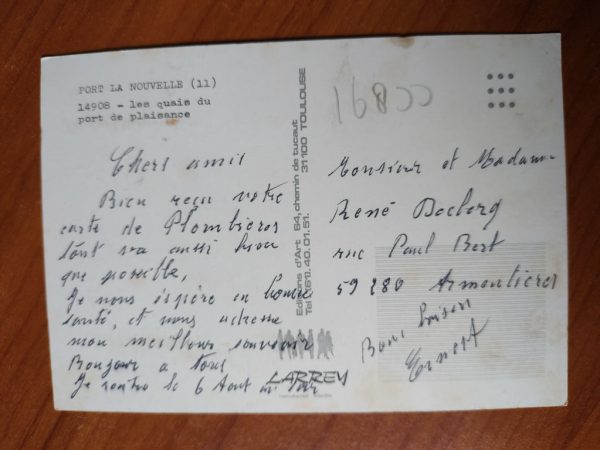 PORT LA NOUVELLE (11)
14908 - les quais du
port de plaisance
Chers amis
Bien reçu votre
carte de Plombières
tout va aussi bien
que possible,
Je vous espère en bonne
santé, et vous
mon meilleur souvenir
Bonjour a tous
Je rentre le 6 Aout au
Editions d'Art 64, chemin de tucaut
Tel (61) 40.01.51. 31100 TOULOUSE
LARREY
CCB91
Monsieur et Madame
René
rue Paul Bert
59280 Armentières
Bons baisers
Ernest